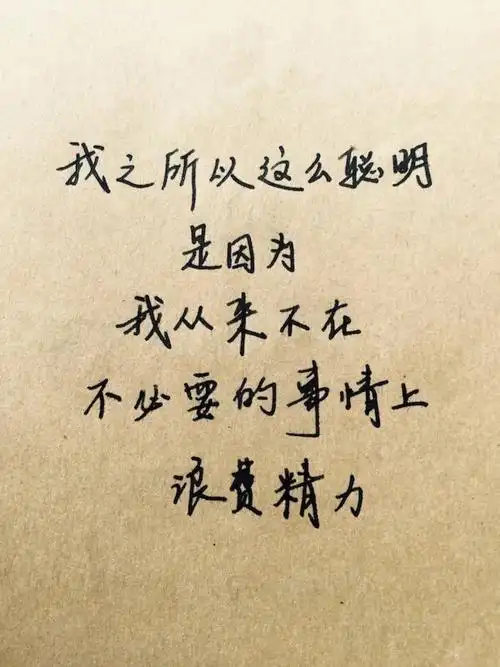 我之所以这么聪明
是因为
我从来不在
不必要的事情上
浪费精力